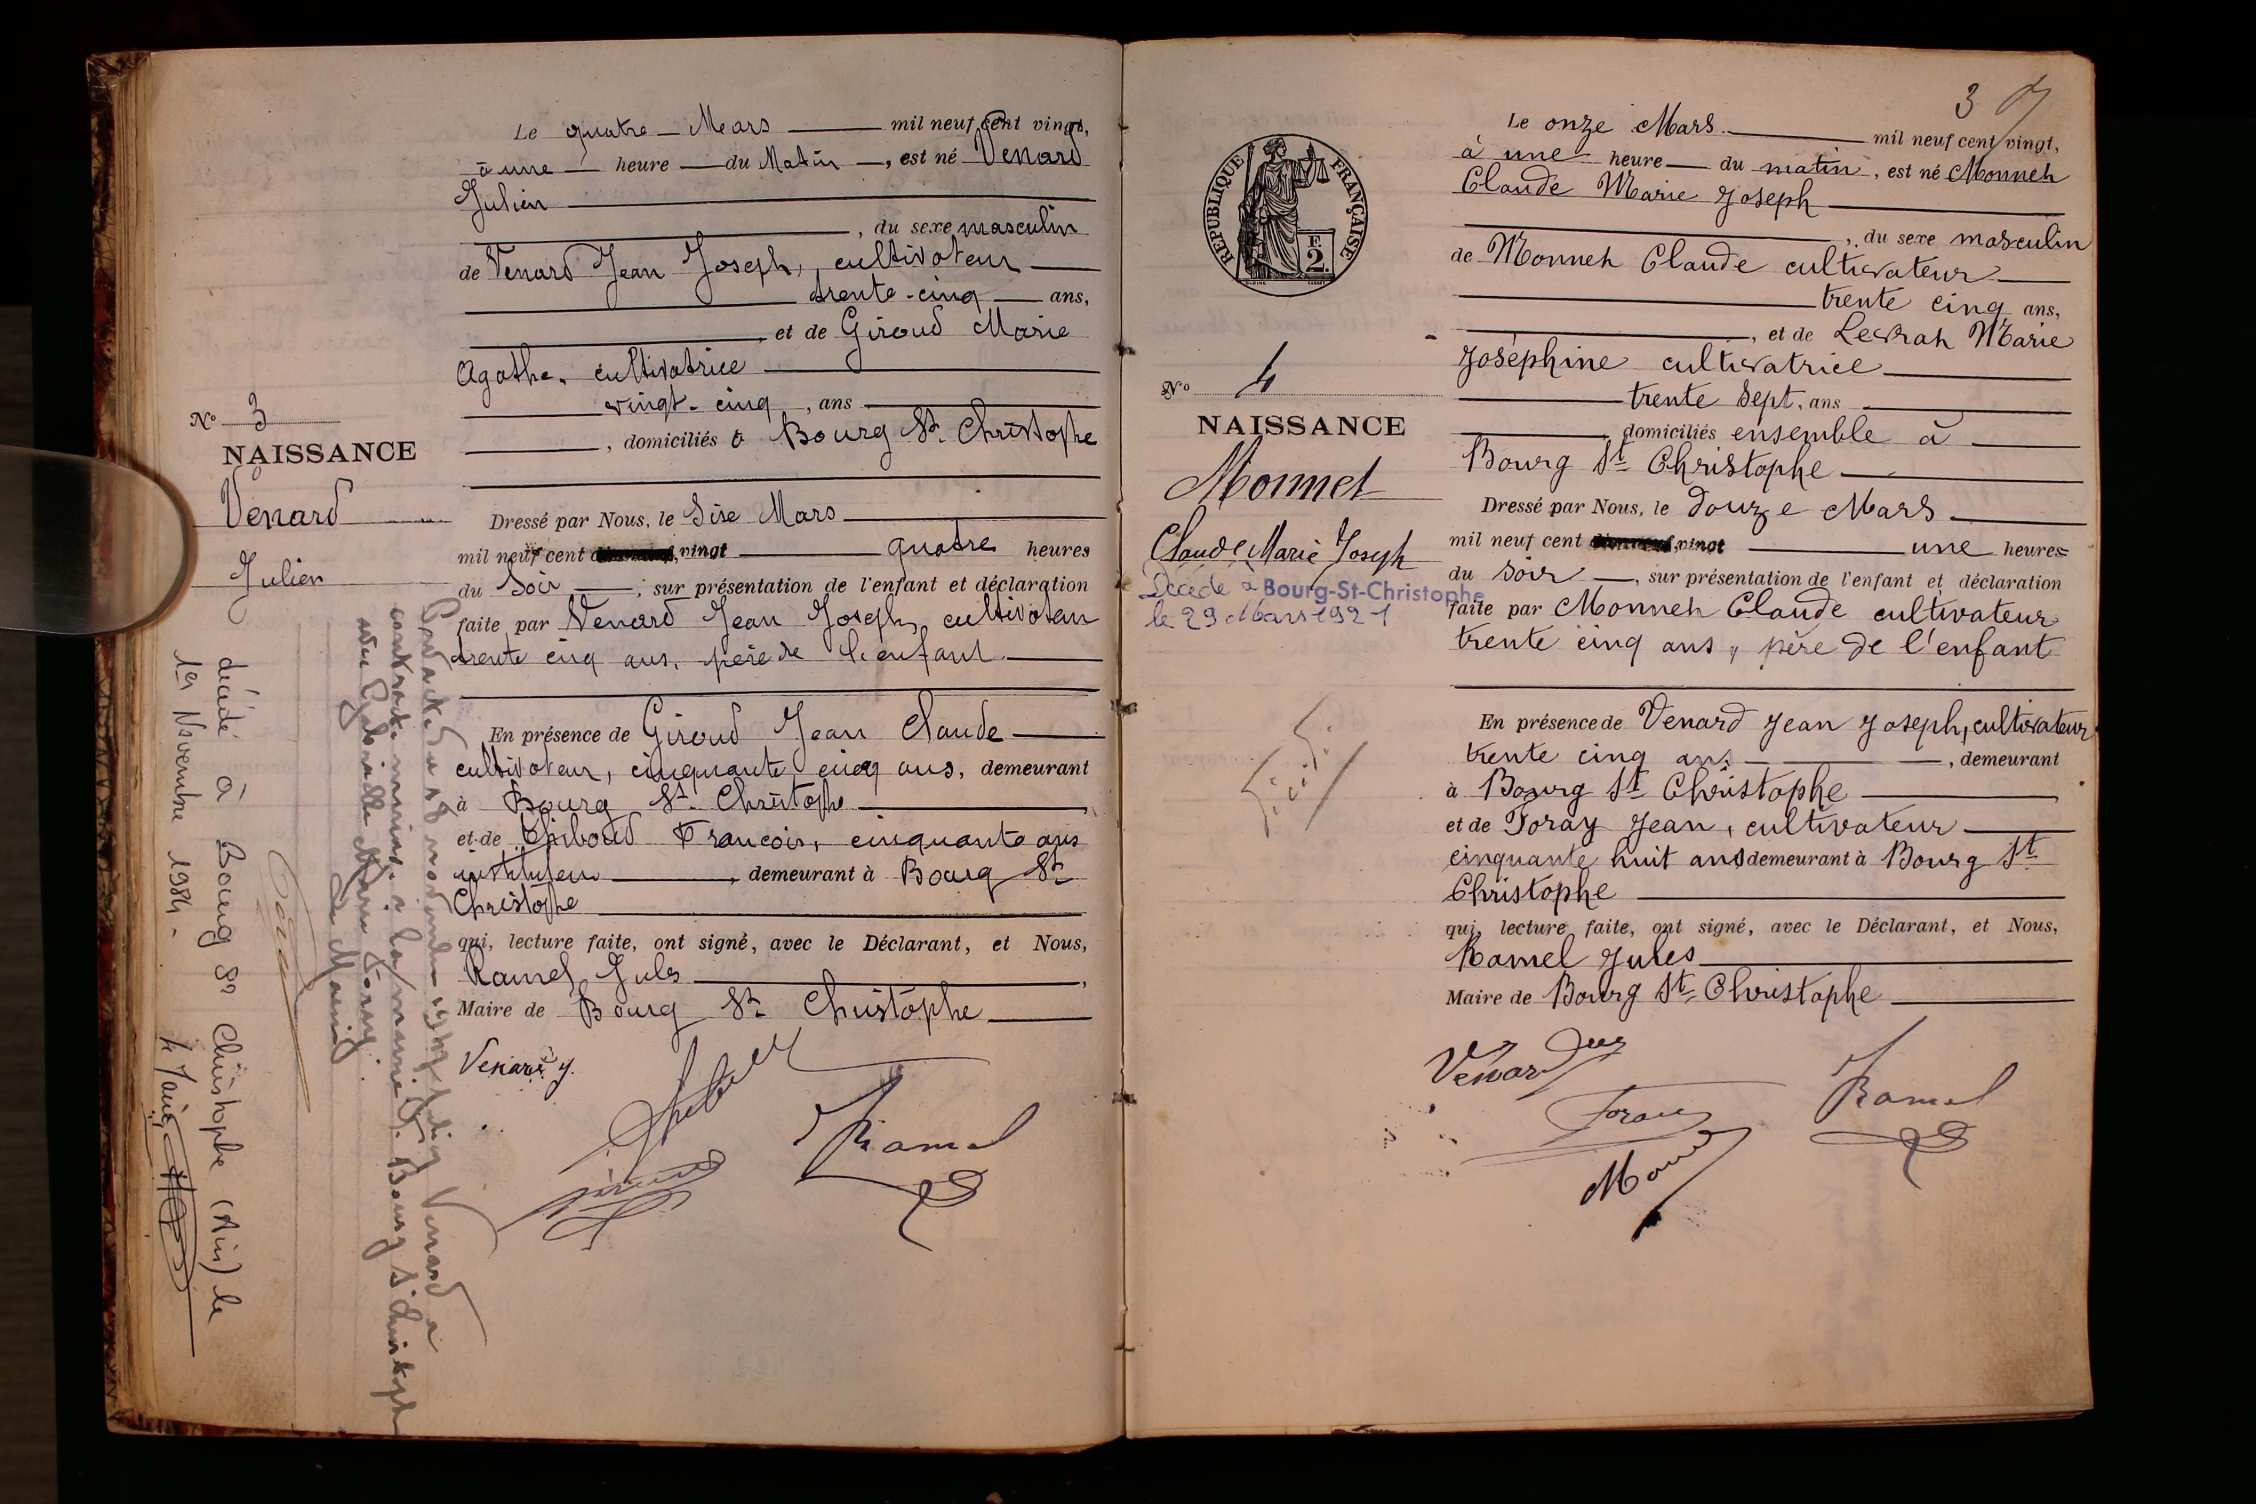 Le quatre Mars mil neuf cent vingt,
à une heure du Matin, est né Venard
Julien
, du sexe masculin
de Venard Jean Joseph, cultivateur
trente-cinq ans,
, et de Giroud Marie
Agathe, cultivatrice
vingt-cinq, ans
, domiciliés à Bourg St Christophe
Dressé par Nous, le Mars
mil neuf cent vingt quatre heures
du Soir, sur présentation de l'enfant et déclaration
faite par Venard Jean Joseph, cultivateur
trente cinq ans, père de l'enfant
En présence de Giroud Jean Claude
cultivateur, cinquante cinq ans, demeurant
à Bourg St Christophe,
et de François, cinquante ans
instituteur, demeurant à Bourg St
Christophe
qui, lecture faite, ont signé, avec le Déclarant, et Nous,
Ramel Jules,
Maire de Bourg St Christophe
Venard J.
Ramel
No 3
NAISSANCE
Venard
Julien
décédé à Bourg St Christophe (Ain) le
1er Novembre 1984.
Le Maire
3
RÉPUBLIQUE FRANÇAISE
F.
2.
Le onze Mars mil neuf cent vingt,
à une heure du matin, est né Monneh
Claude Marie Joseph
, du sexe masculin
de Monneh Claude cultivateur
trente cinq ans,
, et de Levrah Marie
Joséphine cultivatrice
trente sept, ans
domiciliés ensemble à
Bourg St Christophe
Dressé par Nous, le douze Mars
mil neuf cent vingt une heures
du soir, sur présentation de l'enfant et déclaration
faite par Monneh Claude cultivateur
trente cinq ans, père de l'enfant
En présence de Venard Jean Joseph, cultivateur
trente cinq ans, demeurant
à Bourg St Christophe
et de Foray Jean, cultivateur
cinquante huit ans demeurant à Bourg St
Christophe
qui, lecture faite, ont signé, avec le Déclarant, et Nous,
Ramel Jules
Maire de Bourg St Christophe
Venard
Foray
Ramel
No 4
NAISSANCE
Monnet
Claude Marie Joseph
Décédé à Bourg-St-Christophe
le 29 Mars 1921